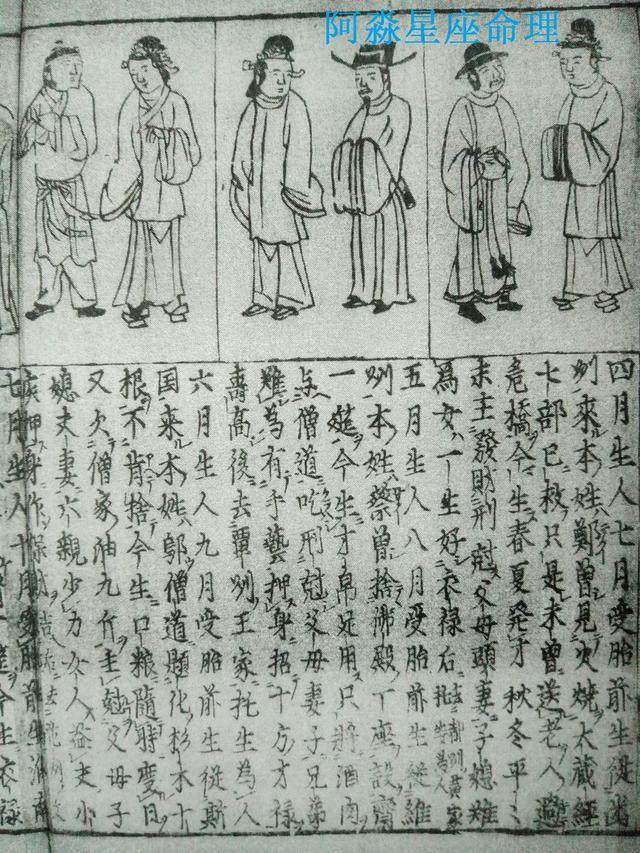 阿淼星座命理
四月生人七月受胎前生從尚
州來本姓鄭曾見火燒大藏經
七部已救只是未曾送老人過
危橋今生春夏発才秋冬平〻
末主發財刑尅父母頭妻子媳难
為女一生好衣禄后
五月生人八月受胎前生從維
州本姓蔡曾捨沸殿一座設齋
一筵今生才帛足用只將酒肉
与僧道吃刑尅父母妻子兄弟
难為有手藝押身招十方才禄
壽高後去單州王家托生為人
六月生人九月受胎前生從斯
国来本姓鄔僧道題化杉木十
根不肯捨今生口粮隨時度日
又欠僧家油九斤主尅父母子
媳夫妻六親少力女人益夫小
七月生人十月受胎前生